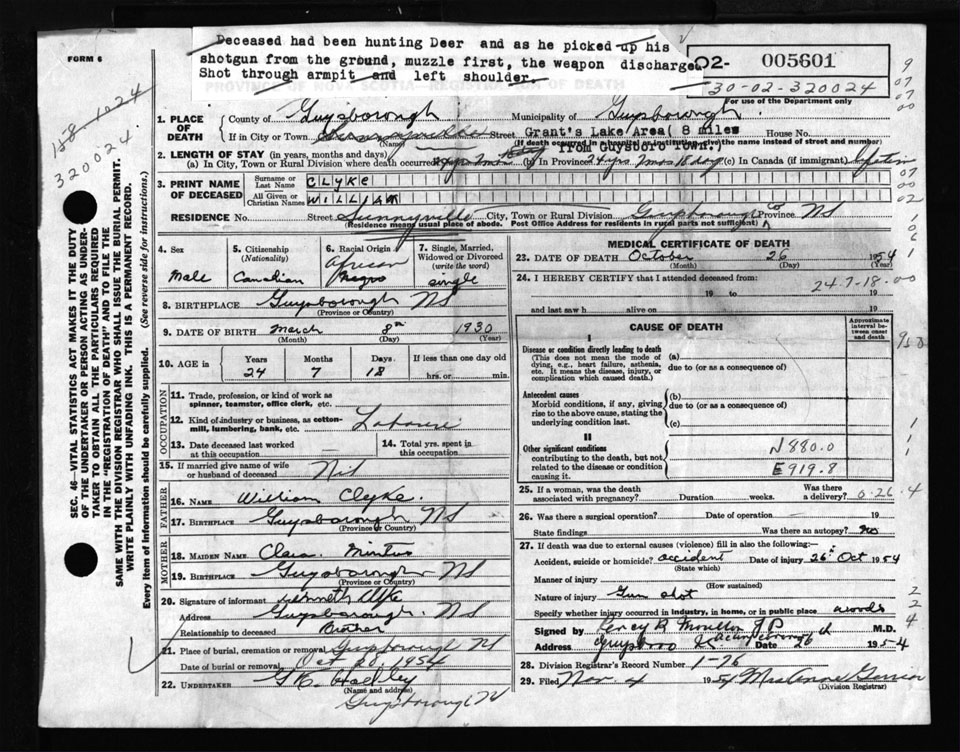 Deceased had been hunting Deer and as he picked up his
shotgun from the ground, muzzle first, the weapon discharged
Shot through armpit and left shoulder.
FORM 6
02- 005601
30-02-320024
For use of the Department only
PROVINCE OF NOVA SCOTIA—REGISTRATION OF DEATH
158-1024
320024
SEC. 46—VITAL STATISTICS ACT MAKES IT THE DUTY
OF THE UNDERTAKER OR PERSON ACTING AS UNDERTAKER TO OBTAIN ALL THE PARTICULARS REQUIRED
IN THE "REGISTRATION OF DEATH" AND TO FILE THE
SAME WITH THE DIVISION REGISTRAR WHO SHALL ISSUE THE BURIAL PERMIT.
WRITE PLAINLY WITH UNFADING INK. THIS IS A PERMANENT RECORD.
Every item of Information should be carefully supplied. (See reverse side for instructions.)
1. PLACE OF DEATH
County of Guysborough Municipality of Guysborough
If in City or Town Street Grant's Lake Area( 8 miles House No.
(Name) (If death occurred in a hospital or institution, give the name instead of street and number)
from Guysboro Town.)
2. LENGTH OF STAY (in years, months and days)
(a) In City, Town or Rural Division where death occurred 24 yrs 7 mos (b) In Province 24 yrs 7 mos 18 day (c) In Canada (if immigrant) Lifetime
3. PRINT NAME OF DECEASED
Surname or Last Name CLYKE
All Given or Christian Names WILLIAM
RESIDENCE No. Street Sunnyville City, Town or Rural Division Guysborough Co Province NS
Residence means usual place of abode. Post Office Address for residents in rural parts not sufficient)
4. Sex
Male
5. Citizenship
(Nationality)
Canadian
6. Racial Origin
African
Negro
7. Single, Married, Widowed or Divorced
(write the word)
single
8. BIRTHPLACE Guysborough NS
(Province or Country)
9. DATE OF BIRTH March 8th 1930
(Month) (Day) (Year)
10. AGE in
Years Months Days If less than one day old
24 7 18 hrs. or min.
OCCUPATION
11. Trade, profession, or kind of work as spinner, teamster, office clerk, etc.
12. Kind of industry or business, as cotton-mill, lumbering, bank, etc.
13. Date deceased last worked at this occupation
14. Total yrs. spent in this occupation
15. If married give name of wife or husband of deceased Nil
FATHER
16. NAME William Clyke.
17. BIRTHPLACE Guysborough NS
(Province or Country)
MOTHER
18. MAIDEN NAME Clara
19. BIRTHPLACE Guysborough NS
(Province or Country)
20. Signature of informant Kenneth Clyke
Address Guysborough. NS
Relationship to deceased Brother
21. Place of burial, cremation or removal Guysborough NS
Date of burial or removal 1954
22. UNDERTAKER
(Name and address)
Guysborough NS
MEDICAL CERTIFICATE OF DEATH
23. DATE OF DEATH October 26 1954
(Month) (Day) (Year)
24. I HEREBY CERTIFY that I attended deceased from:
19 to 19
24-7-18-00
and last saw h alive on 19
CAUSE OF DEATH
Approximate interval between onset and death
I
Disease or condition directly leading to death (a)
(This does not mean the mode of dying, e.g., heart failure, asthenia, etc. It means the disease, injury, or complication which caused death.)
due to (or as a consequence of)
Antecedent causes (b)
Morbid conditions, if any, giving rise to the above cause, stating the underlying condition last.
due to (or as a consequence of)
(c)
II
Other significant conditions
contributing to the death, but not related to the disease or condition causing it.
N880.0
E919.8
25. If a woman, was the death associated with pregnancy? Duration weeks. Was there a delivery? 0-26-4
26. Was there a surgical operation? Date of operation 19
State findings Was there an autopsy? No
27. If death was due to external causes (violence) fill in also the following:—
Accident, suicide or homicide? accident Date of injury 26th Oct 1954
(State which)
Manner of injury
(How sustained)
Nature of injury Gun shot
Specify whether injury occurred in industry, in home, or in public place woods
Signed by Percy R Moulton JP M.D.
Address Guysboro Date 26 1954
28. Division Registrar's Record Number 1-26
29. Filed Nov 4 1954 Mrs
(Division Registrar)